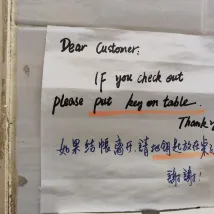 Dear Customer:
IF you check out
please put key on table.
Thank
如果结帳离开,請把钥匙放在桌
謝謝!